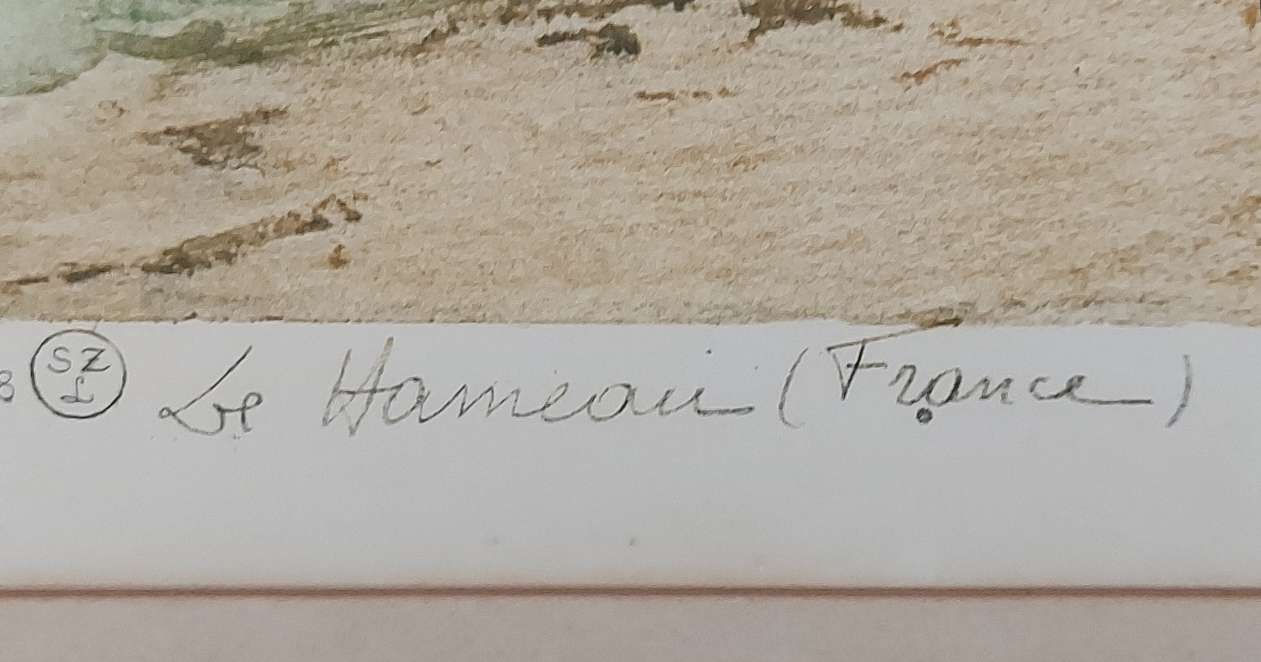 3 SZ
L
Le Hameau (France)